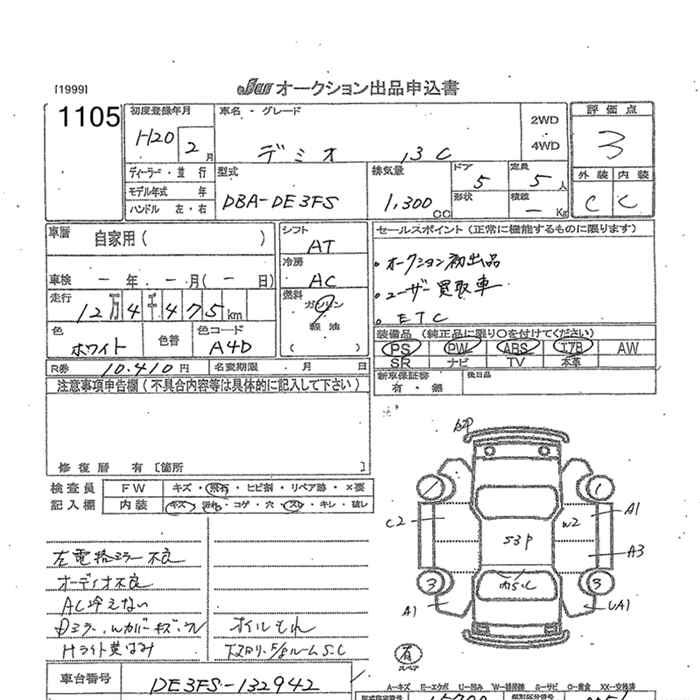 [1999]
JU オークション出品申込書
1105
初度登録年月
車名・グレード
評価点
H20 2月
デミオ 13C
2WD
4WD
3
ディーラー・並行
モデル年式 年
ハンドル 左・右
型式
DBA-DE3FS
排気量
1,300 cc
ドア
5
定員
5人
形状
積載
- Kg
外装 内装
C C
車歴 自家用( )
シフト
AT
セールスポイント(正常に機能するものに限ります)
車検 - 年 - 月( - 日)
冷房
AC
・オークション初出品
・ユーザー買取車
・ETC
走行
12万4千475km
燃料
ガソリン
軽油
( )
色
ホワイト
色替
色コード
A4D
装備品(純正品に限り○を付けてください)
PS PW ABS エアB AW
SR ナビ TV 本革
R券 10.410円
名変期限 月 日
新車保証書
有・無
後日品
注意事項申告欄(不具合内容等は具体的に記入して下さい)
修復歴 有 [箇所 ]
検査員
記入欄
FW キズ・飛石・ヒビ割・リペア跡・×要
内装 キズ・汚れ・コゲ・穴・スレ・キレ・破レ
左電格ミラー不良
オーディオ不良
AC冷えない
Hライト黄ばみ
オイルもれ
1
C2
W2
A1
53P
A3
3
3
A1
UA1
有
スペア
車台番号 DE3FS-132942
A-キズ E-エクボ U-凹み W-補修跡 S-サビ C-腐食 XX-交換済